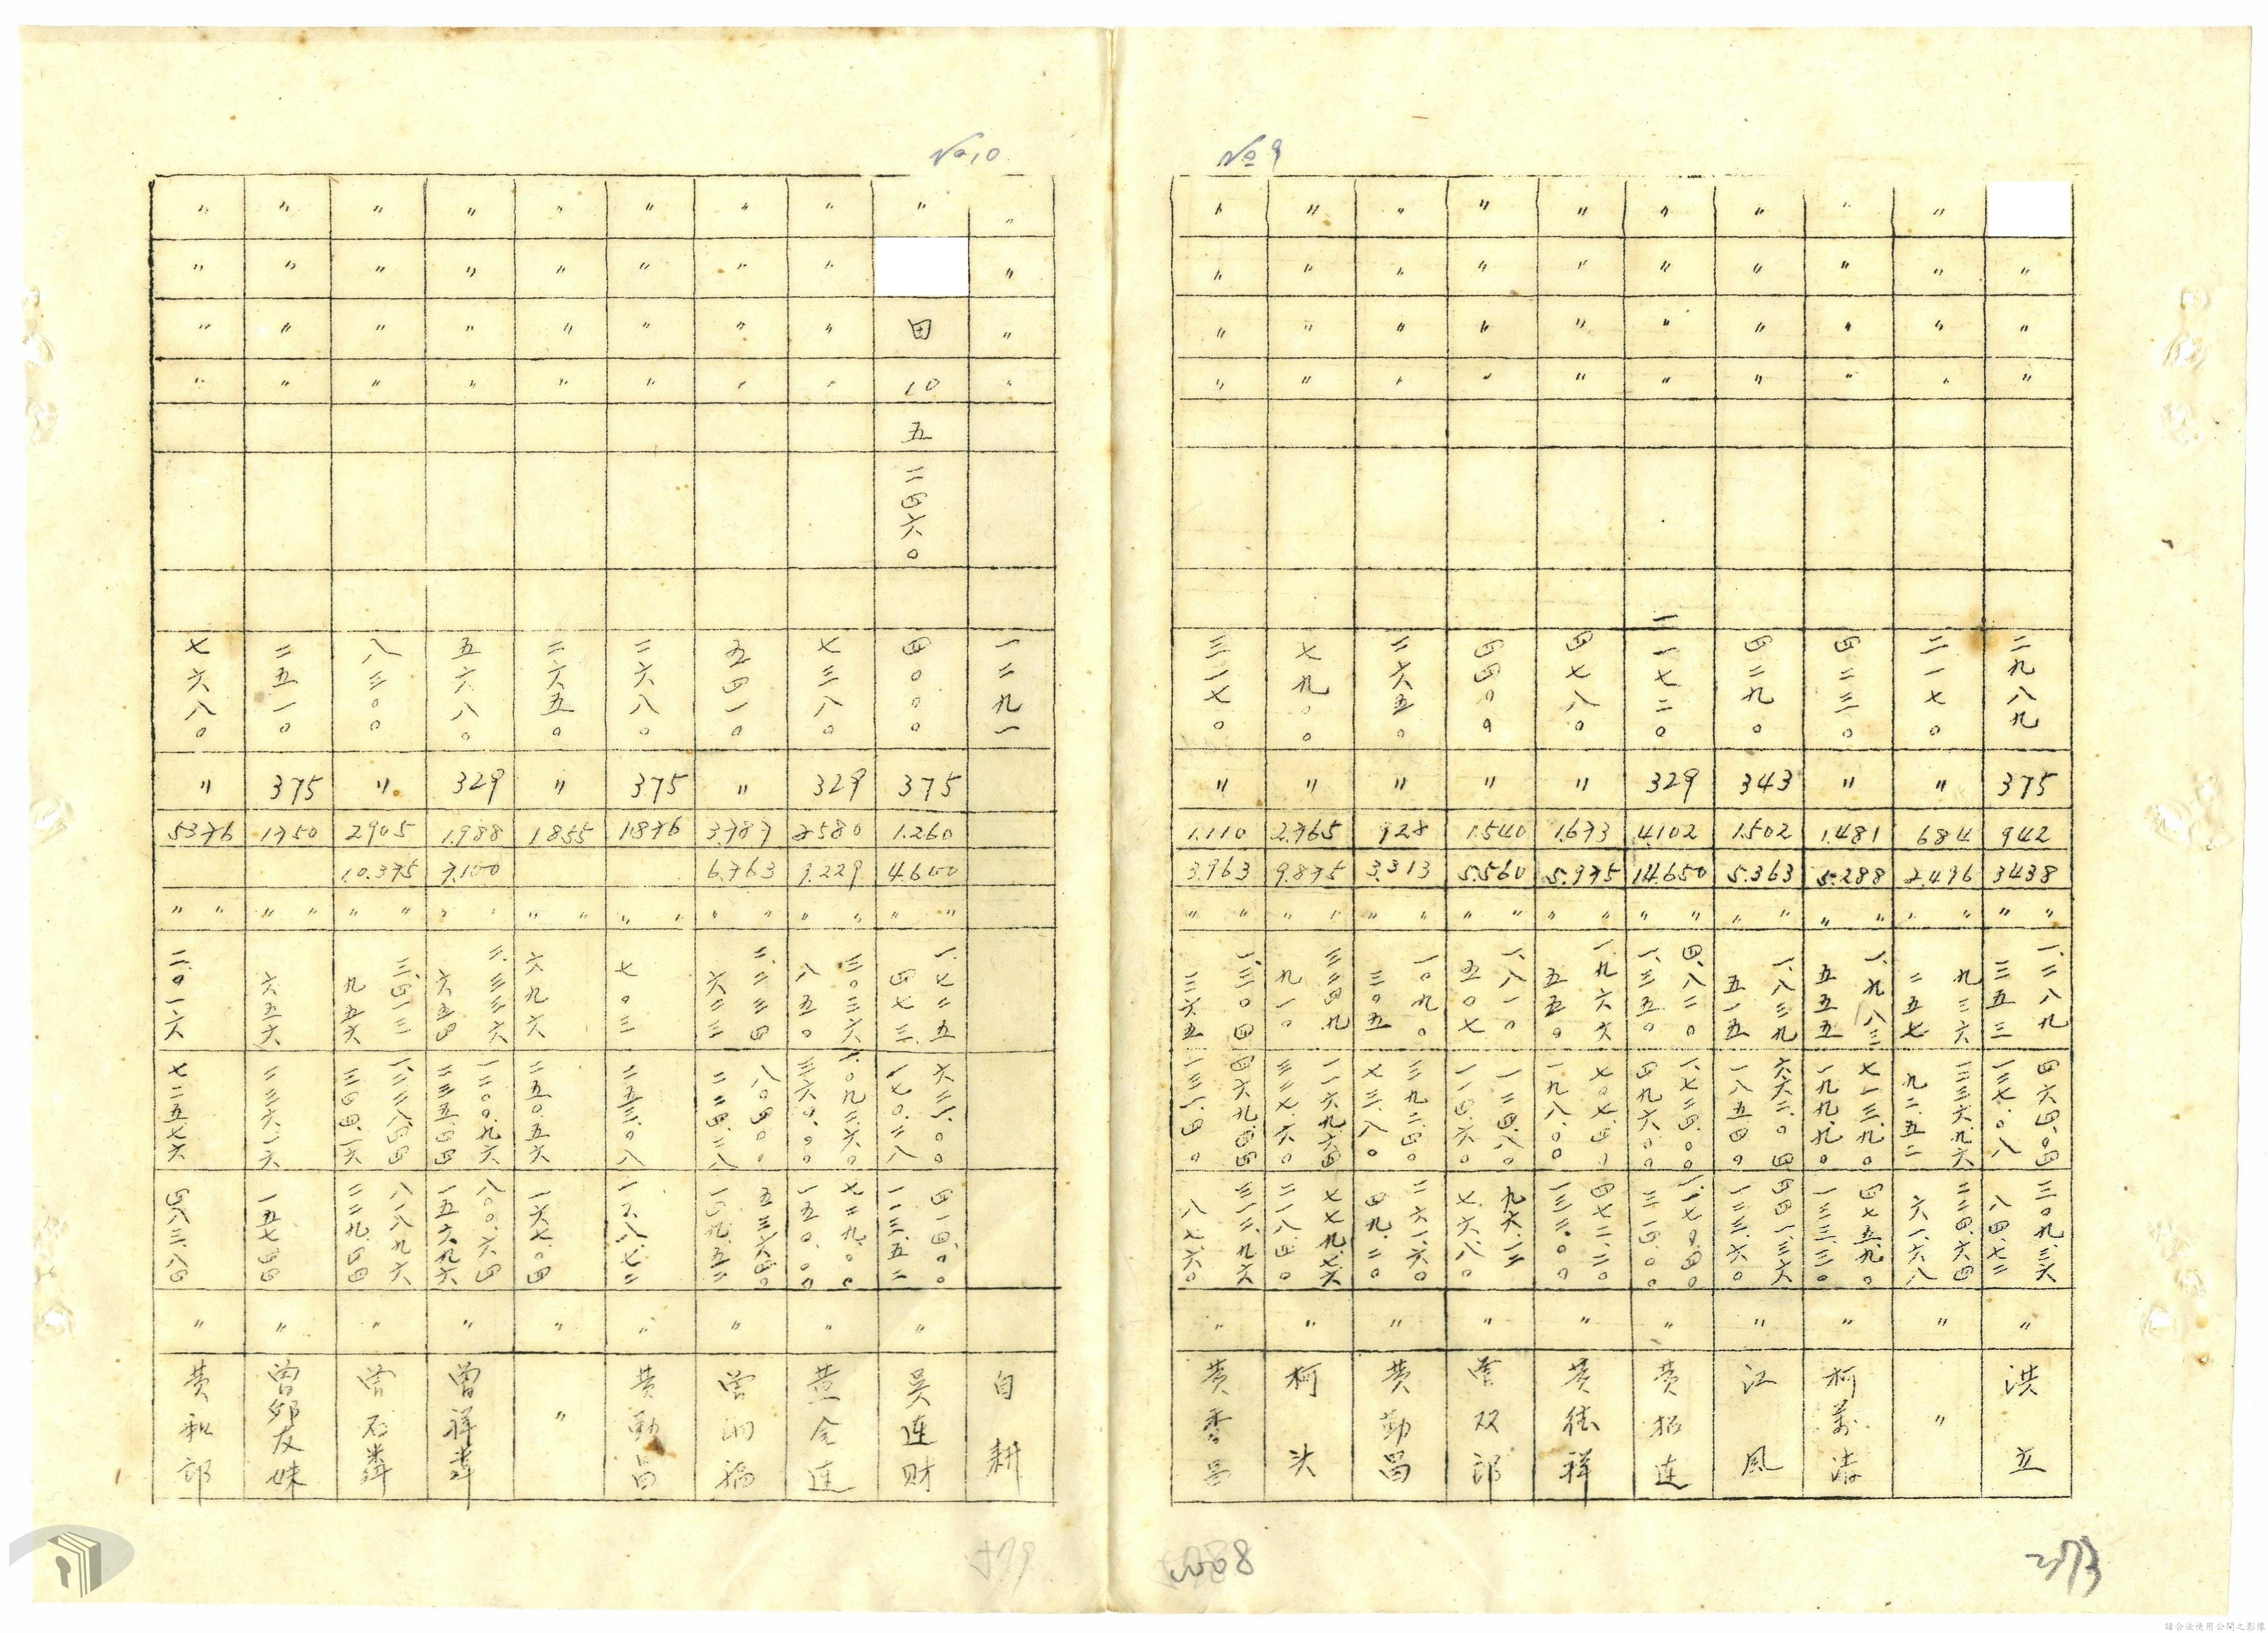 No 9
〃 〃 〃 二九八九 375 942 3438 〃 〃 一、二八九 三五三 四六四.〇四 一二七.〇八 三〇九.三六 八四.七二 〃 洪 立
〃 〃 〃 〃 二一七〇 〃 684 2.496 〃 〃 九三六 二五七 三三六.九六 九二.五二 二二四.六四 六一.六八 〃 〃
〃 〃 〃 〃 四二三〇 〃 1.481 5.288 〃 〃 一、九八三 五五五 七一三.九〇 一九九.九〇 四七五.九〇 一三三.三〇 〃 柯萬
〃 〃 〃 〃 四二九〇 343 1.502 5.363 〃 〃 一、八三九 五一五 六六二.〇四 一八五四〇 四四一.三六 一二三.六〇 〃 江 風
〃 〃 〃 〃 一一七二〇 329 4.102 14.650 〃 〃 四、八二〇 一、三五〇 一、七二四.〇〇 四九六.〇〇 一、一七〇.四〇 三一四.〇〇 〃 黄 连
〃 〃 〃 〃 四七八〇 〃 1.673 5.975 〃 〃 一、九六六 五五〇 七〇七.四〇 一九八.〇〇 四七二.二〇 一三二.〇〇 〃 黄 祥
〃 〃 〃 〃 四四〇〇 〃 1.540 5.560 〃 〃 一、八一〇 五〇七 一二四.八〇 一一四.六〇 九六.三二 七六.八〇 〃 曾双郎
〃 〃 〃 〃 二六五〇 〃 928 3.313 〃 〃 一〇九〇 三〇五 三九二.四〇 七三.八〇 二六一.六〇 四九.二〇 〃 黄勤昌
〃 〃 〃 〃 七九〇〇 〃 2.765 9.875 〃 〃 三二四九 九一〇 一一六九.六四 三二七.六〇 七七九.七六 二一八.四〇 〃 柯 头
〃 〃 〃 〃 三一七〇 〃 1.110 3.963 〃 〃 一、三〇四 三六五 四六九.四四 一三一.四〇 三一二.九六 八七.六〇 〃 黄香
2008
No 10
〃 〃 〃 〃 一二九一 自 耕
〃 田 10 五 二四六〇 四〇〇〇 375 1.260 4.600 〃 〃 一、七二五 四七三 六二一.〇〇 一七〇.二八 四一四.〇〇 一一三.五二 〃 吴连财
〃 〃 〃 〃 七三八〇 329 2580 9.229 〃 〃 三〇三六 八五〇 一、〇九二.六〇 三六〇.〇〇 七二九.〇〇 一五〇.〇〇 〃 黄全連
〃 〃 〃 〃 五四一〇 〃 3.787 6.763 〃 〃 二、二三四 六二三 八〇四.〇〇 二二四.二八 五三六.四〇 一四九.五二 〃 曾 福
〃 〃 〃 〃 二六八〇 375 1.876 〃 〃 七〇三 二五三.〇八 一六八.七二 〃 黄勤昌
〃 〃 〃 〃 二六五〇 〃 1855 〃 〃 六九六 二五〇.五六 一六七.〇四 〃 〃
〃 〃 〃 〃 五六八〇 329 1.988 7.100 〃 〃 二、三三六 六五四 一二〇〇.九六 二三五.四四 八〇〇.六四 一五六.九六 〃 曾祥
〃 〃 〃 〃 八三〇〇 〃 2905 10.375 〃 〃 三、四一三 九五六 一、二二八.四四 三四四.一六 八一八.九六 二二九.四四 〃 曾石
〃 〃 〃 〃 二五一〇 375 1750 〃 〃 六五六 二三六.一六 一五七.四四 〃 曾 友妹
〃 〃 〃 〃 七六八〇 〃 5376 〃 〃 二、〇一六 七二五.七六 四八三.八四 〃 黄和郎
請合法使用公開之影像